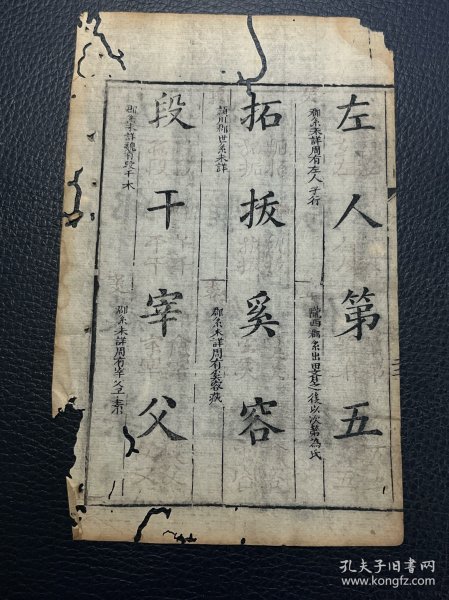 左人第五
郡系未詳周有左人子行
隴西郡系出田
後以次第為氏
拓拔奚容
潁川郡世系未詳
郡系未詳周有奚容蒧
段干宰父
郡系未詳魏有段干木
郡系未詳周有宰父
孔夫子旧书网
www.kongfz.com